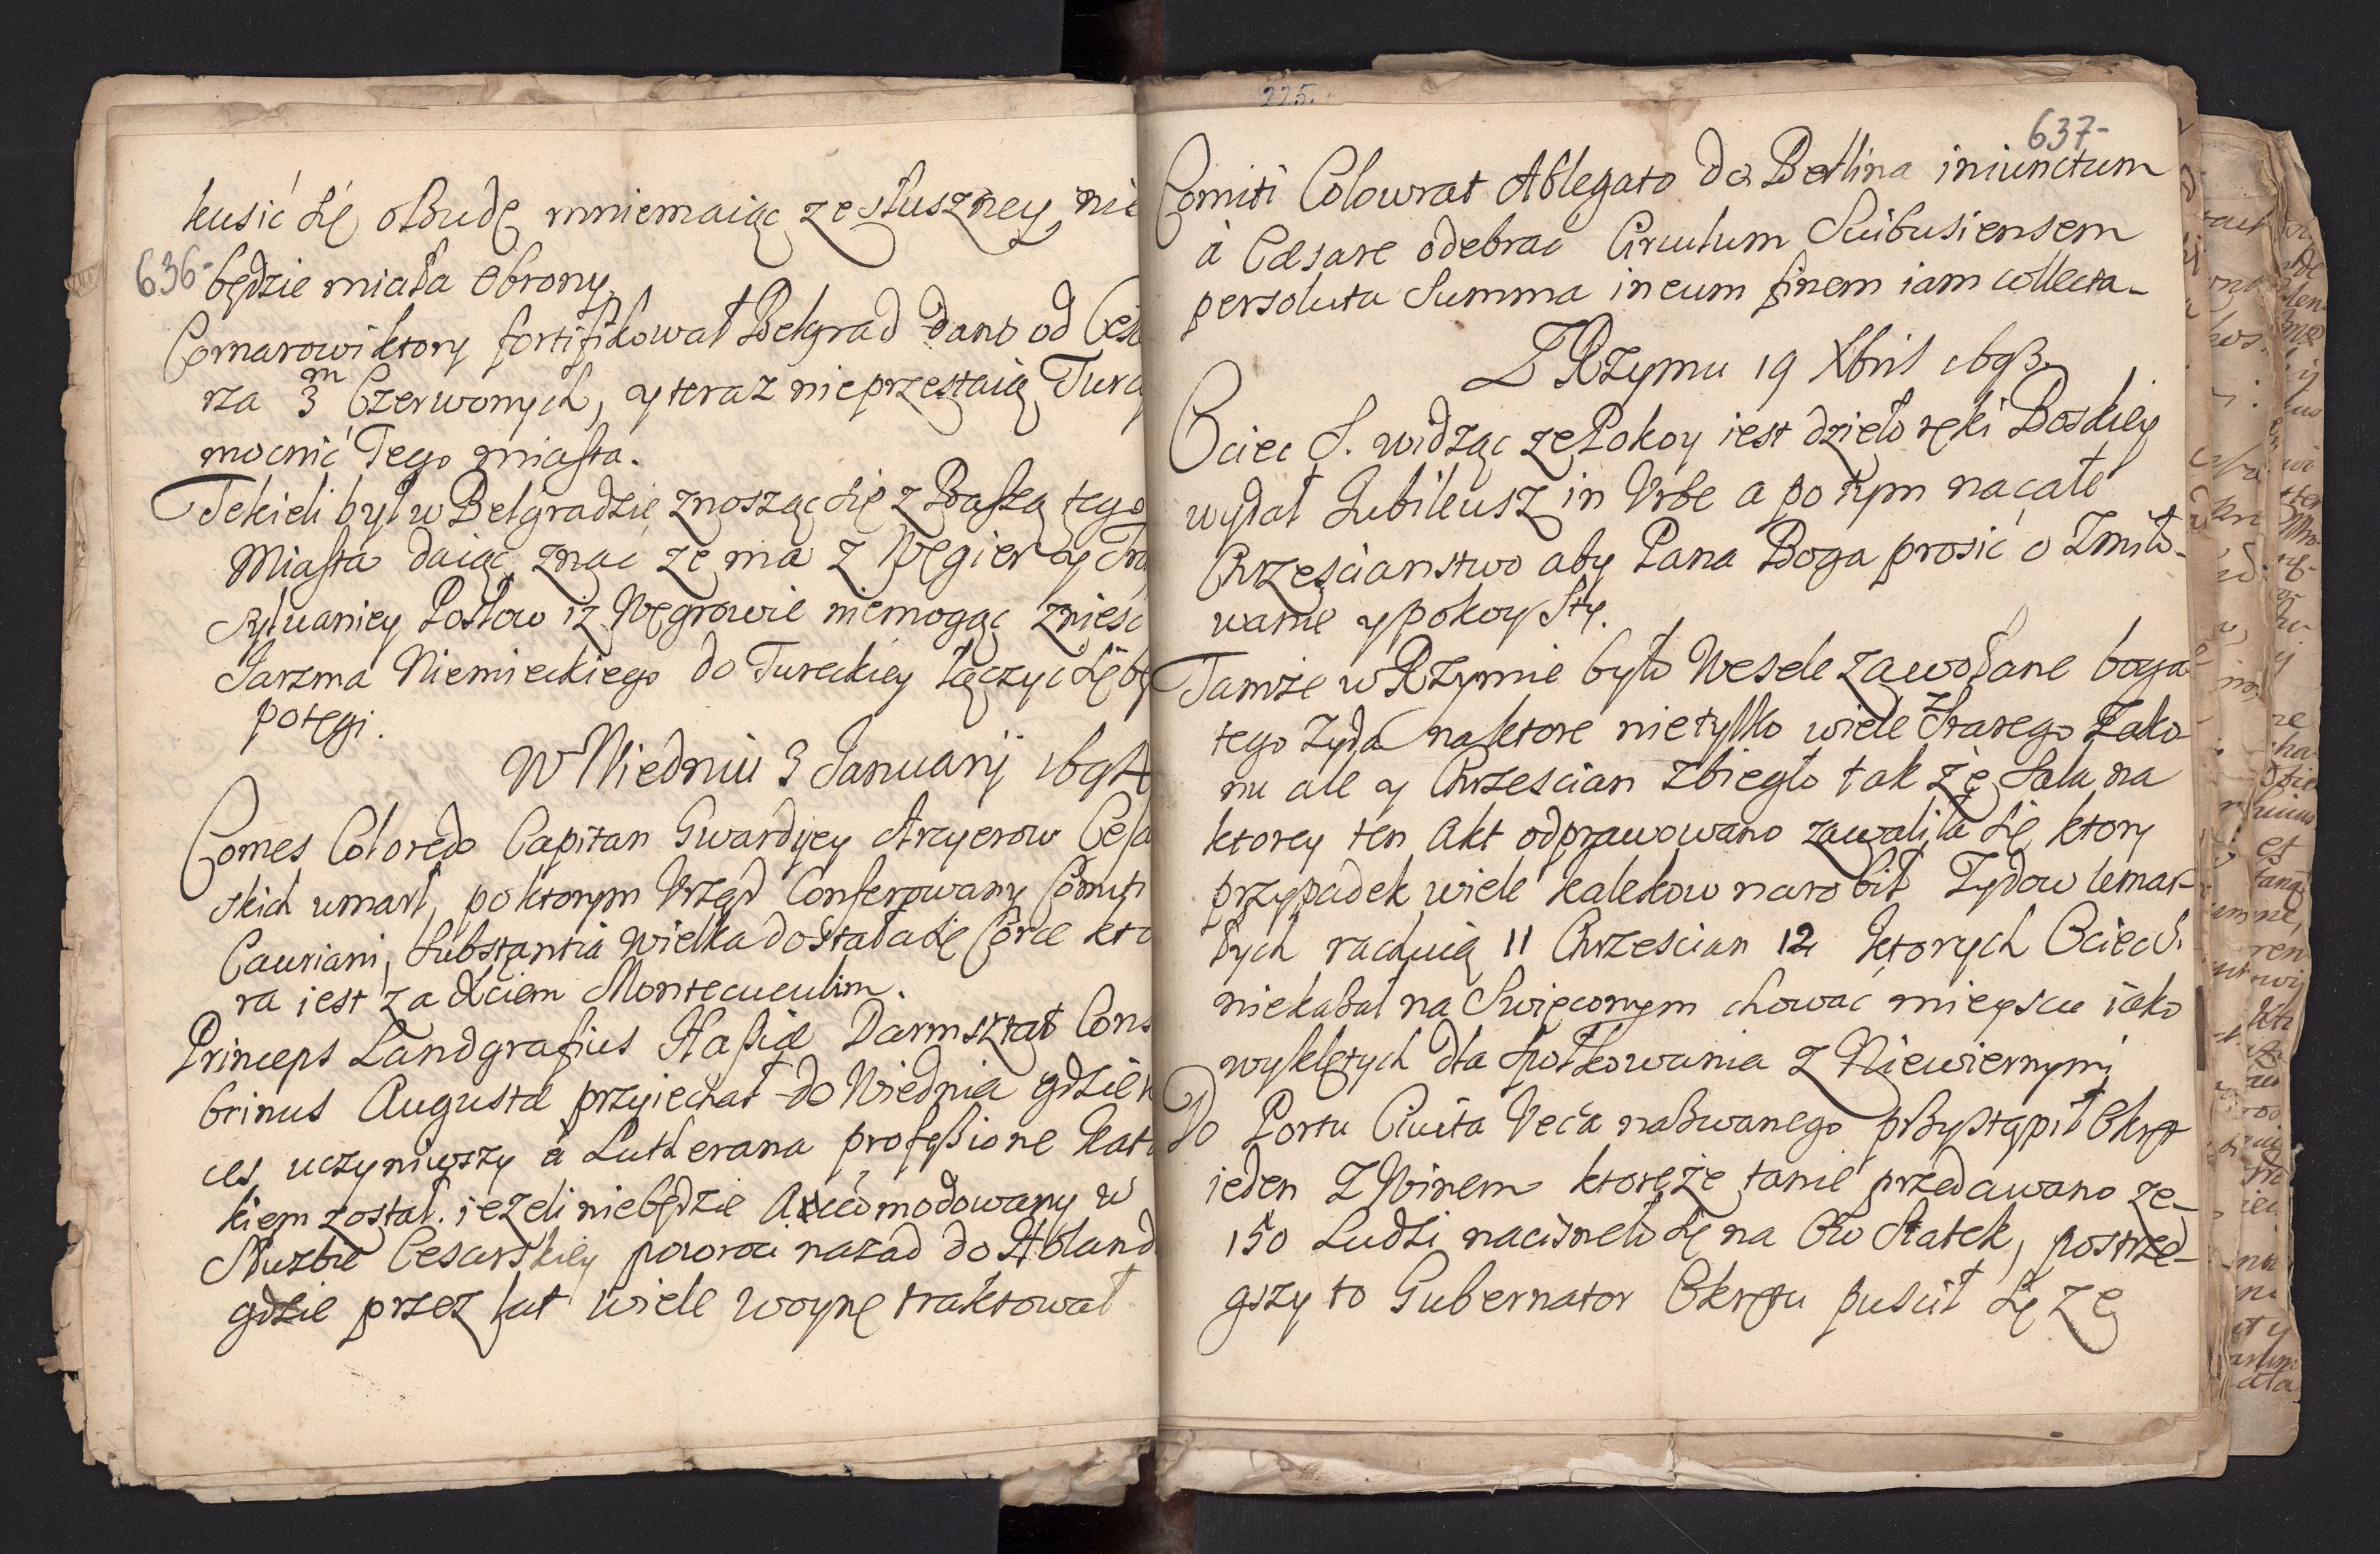 kusić się o Budę mniemaiąc ze słuszney nie
636- będzie miała obrony
Cornarowi ktory fortifikował Belgrad dano od Cesa
rza 3m Czerwonych, y teraz nie przestaią Turcy
mocnić Tego miasta.
Tekieli był w Belgradzie znosząc się z Baszą tego
Miasta daiąc znać ze ma z Węgier y Tran
sylvaniey Posłow iz Węgrowie niemogąc znieść
Jarzma Niemieckiego do Tureckiey łączyć się bę
potęgi.
W Wiedniu 3 Januarij 1694
Comes Coloredo Capitan Gwardyey Arcyerow Cesa
rskich umarł, po ktorym Vrząd Conferowany Comiti
Cauriani, Substantia wielka dostała się Corce kto
ra iest za Xciem Montecuculim.
Princeps Landgrafius Hassiæ Darmsztat Cons
brinus Augustæ przyiechał do Wiednia gdzie
ces uczyniwszy à Lutherana professione kato
kiem został. ieżeli niebędzie accomodowany w
Służbie Cesarskiey powroci nazad do Holand
gdzie przez lat wiele woynę traktował
225.
637-
Comiti Colowrat Ablegato do Berlina iniunctum
à Cæsare odebrać Circulum Suibusiensem
persoluta Summa in eum finem iam collecta-
Z Rzymu 19 Xbris 1693.
Ociec S. widząc ze Pokoy iest dzieło ręki Boskiey
wydał Jubileusz in Vrbe a po tym na całe
Chrześcianstwo aby Pana Boga prosić o Zmiło-
wanie y pokoy Sty.
Tamże w Rzymie było Wesele zawołane boga
tego Zyda na ktore nie tylko wiele Starego Zako
nu ale y Chrzescian zbiegło tak że Sala na
ktorey ten Akt odprawowano zawaliła się ktory
przypadek wiele kalekow narobił Zydow umar-
łych rachuią 11 Chrzescian 12 ktorych Ociec S.
niekazał na Swięconym chować mieyscu iako
wyklętych dla społkowania z Niewiernymi
Do Portu Ciuita Veća nazwanego przystąpił Okręt
ieden z Winem ktore że tanie przedawano ze-
150 Ludzi nacisneło się na Ow Statek, postrze-
gszy to Gubernator Okrętu puścił się ze